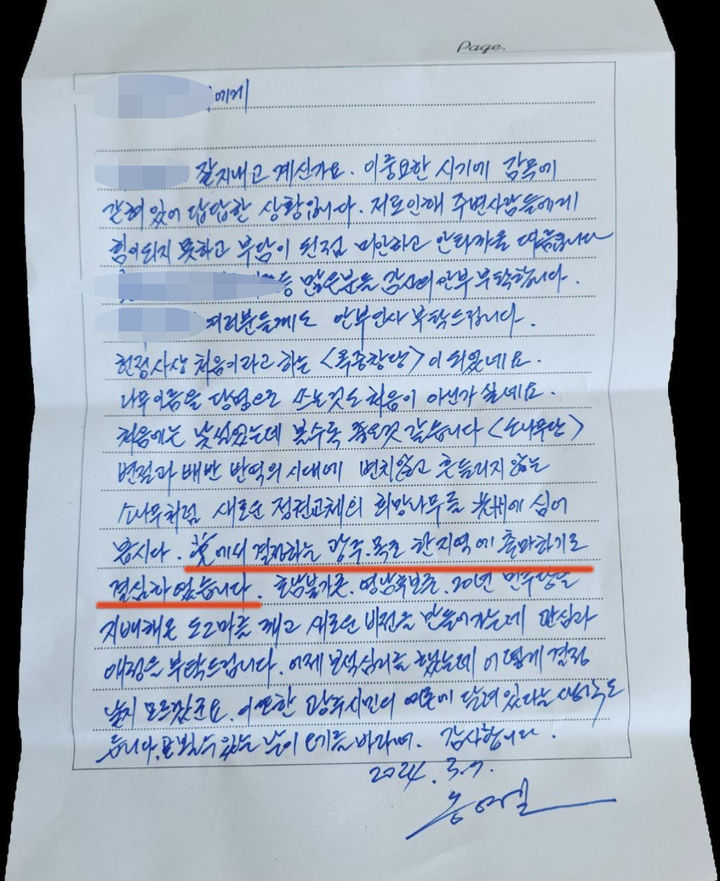 Page.
에게
잘지내고 계신가요. 이중요한 시기에 감옥에
갇혀 있어 답답한 상황입니다. 저로인해 주변사람들에게
힘이되지 못하고 부담이 된점 미안하고 안타까울 따름입니다
등 많은분들 감사의 안부 부탁합니다.
여러분들께도 안부인사 부탁드립니다.
헌정사상 처음이라고 하는 <옥중창당>이 되었네요.
나무이름을 당명으로 쓰는것도 처음이 아닌가 싶네요.
처음에는 낯설었는데 볼수록 좋은것 같습니다 <소나무당>
변절과 배반 반역의 시대에 변치않고 흔들리지 않는
소나무처럼 새로운 정권교체의 희망나무를 光州에 심어
봅시다. 黨에서 결정하는 광주·목포 한지역에 출마하기로
결심하였습니다. 호남불가론. 영남후보론. 20년 민주당을
지배해온 도그마를 깨고 새로운 비전을 만들어가는데 관심과
애정을 부탁드립니다. 어제 보석심리를 했는데 어떻게 결정
날지 모르겠군요. 이또한 광주시민의 여론에 달려있다는 생각도
듭니다. 뵐수있는 날이 오기를 바라며. 감사합니다.
2024. 3. 7.
송영길